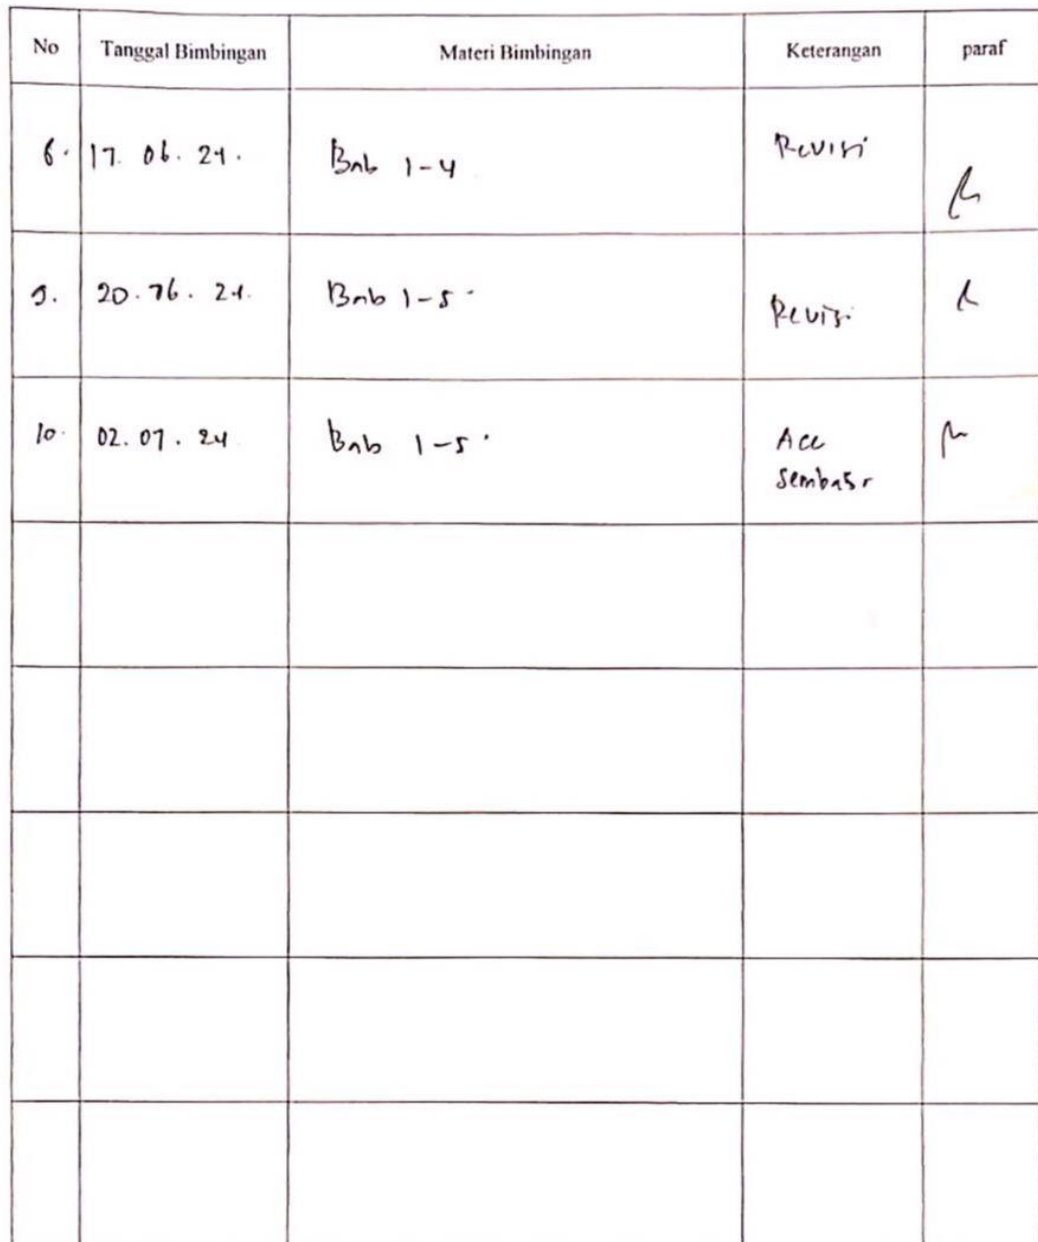 No Tanggal Bimbingan Materi Bimbingan Keterangan paraf
8. 17. 06. 24. Bab 1-4 Revisi
9. 20. 06. 24. Bab 1-5. Revisi
10. 02. 07. 24 Bab 1-5. Acc